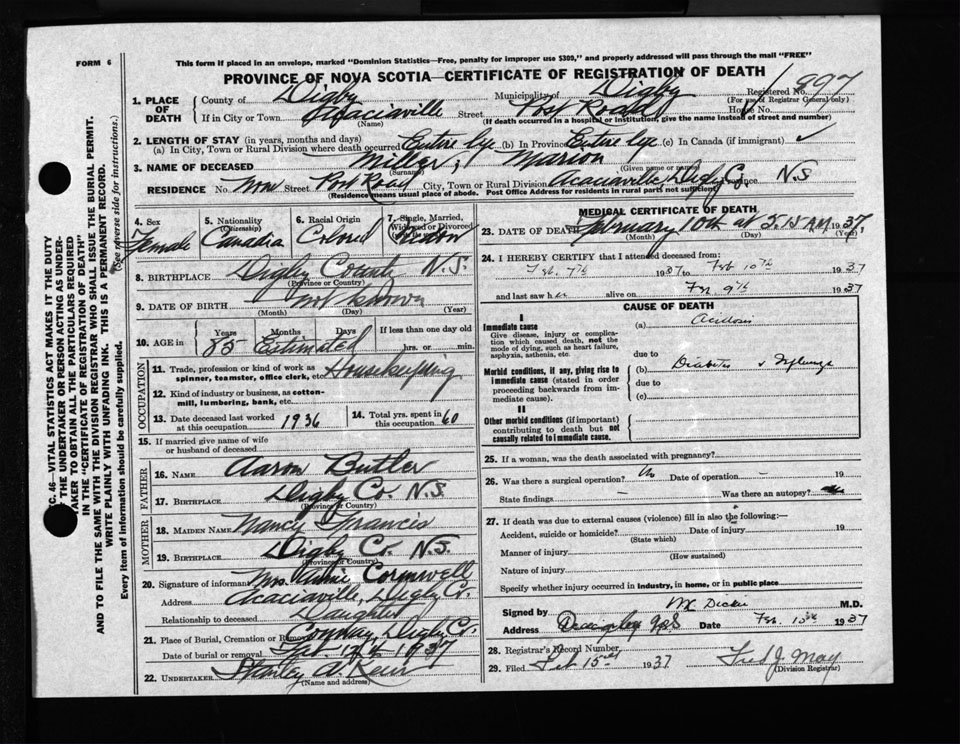 FORM 6
This form if placed in an envelope, marked "Dominion Statistics—Free, penalty for improper use $300," and properly addressed will pass through the mail "FREE"
PROVINCE OF NOVA SCOTIA—CERTIFICATE OF REGISTRATION OF DEATH
1. PLACE OF DEATH
County of Digby Municipality of Digby Registered No. 997
(For use of Registrar General only)
If in City or Town Acaciaville Street Post Road House No.
(Name) (If death occurred in a hospital or institution, give the name instead of street and number)
2. LENGTH OF STAY (in years, months and days)
(a) In City, Town or Rural Division where death occurred Entire life (b) In Province Entire life (c) In Canada (if immigrant)
3. NAME OF DECEASED Miller, Marion
(Surname) (Given name or names)
RESIDENCE No. Street Post Road City, Town or Rural Division Acaciaville Digby Co. Province N.S
(Residence means usual place of abode. Post Office Address for residents in rural parts not sufficient)
4. Sex Female
5. Nationality (Citizenship) Canadia
6. Racial Origin Colored
7. Single, Married, Widowed or Divorced Widow
8. BIRTHPLACE Digby County N.S.
(Province or Country)
9. DATE OF BIRTH not known
(Month) (Day) (Year)
10. AGE in Years Months Days If less than one day old
85 Estimated hrs. or min.
OCCUPATION
11. Trade, profession or kind of work as spinner, teamster, office clerk, etc. Housekeeping
12. Kind of industry or business, as cotton-mill, lumbering, bank, etc.
13. Date deceased last worked at this occupation 1936
14. Total yrs. spent in this occupation 60
15. If married give name of wife or husband of deceased
FATHER
16. NAME Aaron Butler
17. BIRTHPLACE Digby Co. N.S.
(Province or Country)
MOTHER
18. MAIDEN NAME Nancy Francis
19. BIRTHPLACE Digby Co. N.S.
(Province or Country)
20. Signature of informant Mrs. Cornwell
Address Acaciaville, Digby Co.
Relationship to deceased Daughter
21. Place of Burial, Cremation or Removal Conway, Digby Co.
Date of burial or removal Feb. 12th 1937
22. UNDERTAKER Stanley A.
(Name and address)
MEDICAL CERTIFICATE OF DEATH
23. DATE OF DEATH February 10th at 5.15 A.M. 1937
(Month) (Day) (Year)
24. I HEREBY CERTIFY that I attended deceased from:
Feb 7th 1937 to Feb 10th 1937
and last saw her alive on Feb 9th 1937
CAUSE OF DEATH
I
Immediate cause
Give disease, injury or complication which caused death, not the mode of dying, such as heart failure, asphyxia, asthenia, etc.
(a) Acidosis
due to
Morbid conditions, if any, giving rise to immediate cause (stated in order proceeding backwards from immediate cause).
(b) Diabetes & Influenza
due to
(c)
II
Other morbid conditions (if important) contributing to death but not causally related to immediate cause.
25. If a woman, was the death associated with pregnancy?
26. Was there a surgical operation? No Date of operation – 19
State findings – Was there an autopsy?
27. If death was due to external causes (violence) fill in also the following:—
Accident, suicide or homicide? Date of injury 19
(State which)
Manner of injury
(How sustained)
Nature of injury
Specify whether injury occurred in industry, in home, or in public place
Signed by Dickie M.D.
Address Date Feb. 15th 1937
28. Registrar's Record Number
29. Filed Feb 15th 1937 Fred J. May
(Division Registrar)
C. 46—VITAL STATISTICS ACT MAKES IT THE DUTY
THE UNDERTAKER OR PERSON ACTING AS UNDER-
TAKER TO OBTAIN ALL THE PARTICULARS REQUIRED
IN THE "CERTIFICATE OF REGISTRATION OF DEATH"
AND TO FILE THE SAME WITH THE DIVISION REGISTRAR WHO SHALL ISSUE THE BURIAL PERMIT.
WRITE PLAINLY WITH UNFADING INK. THIS IS A PERMANENT RECORD.
Every item of information should be carefully supplied. (See reverse side for instructions.)